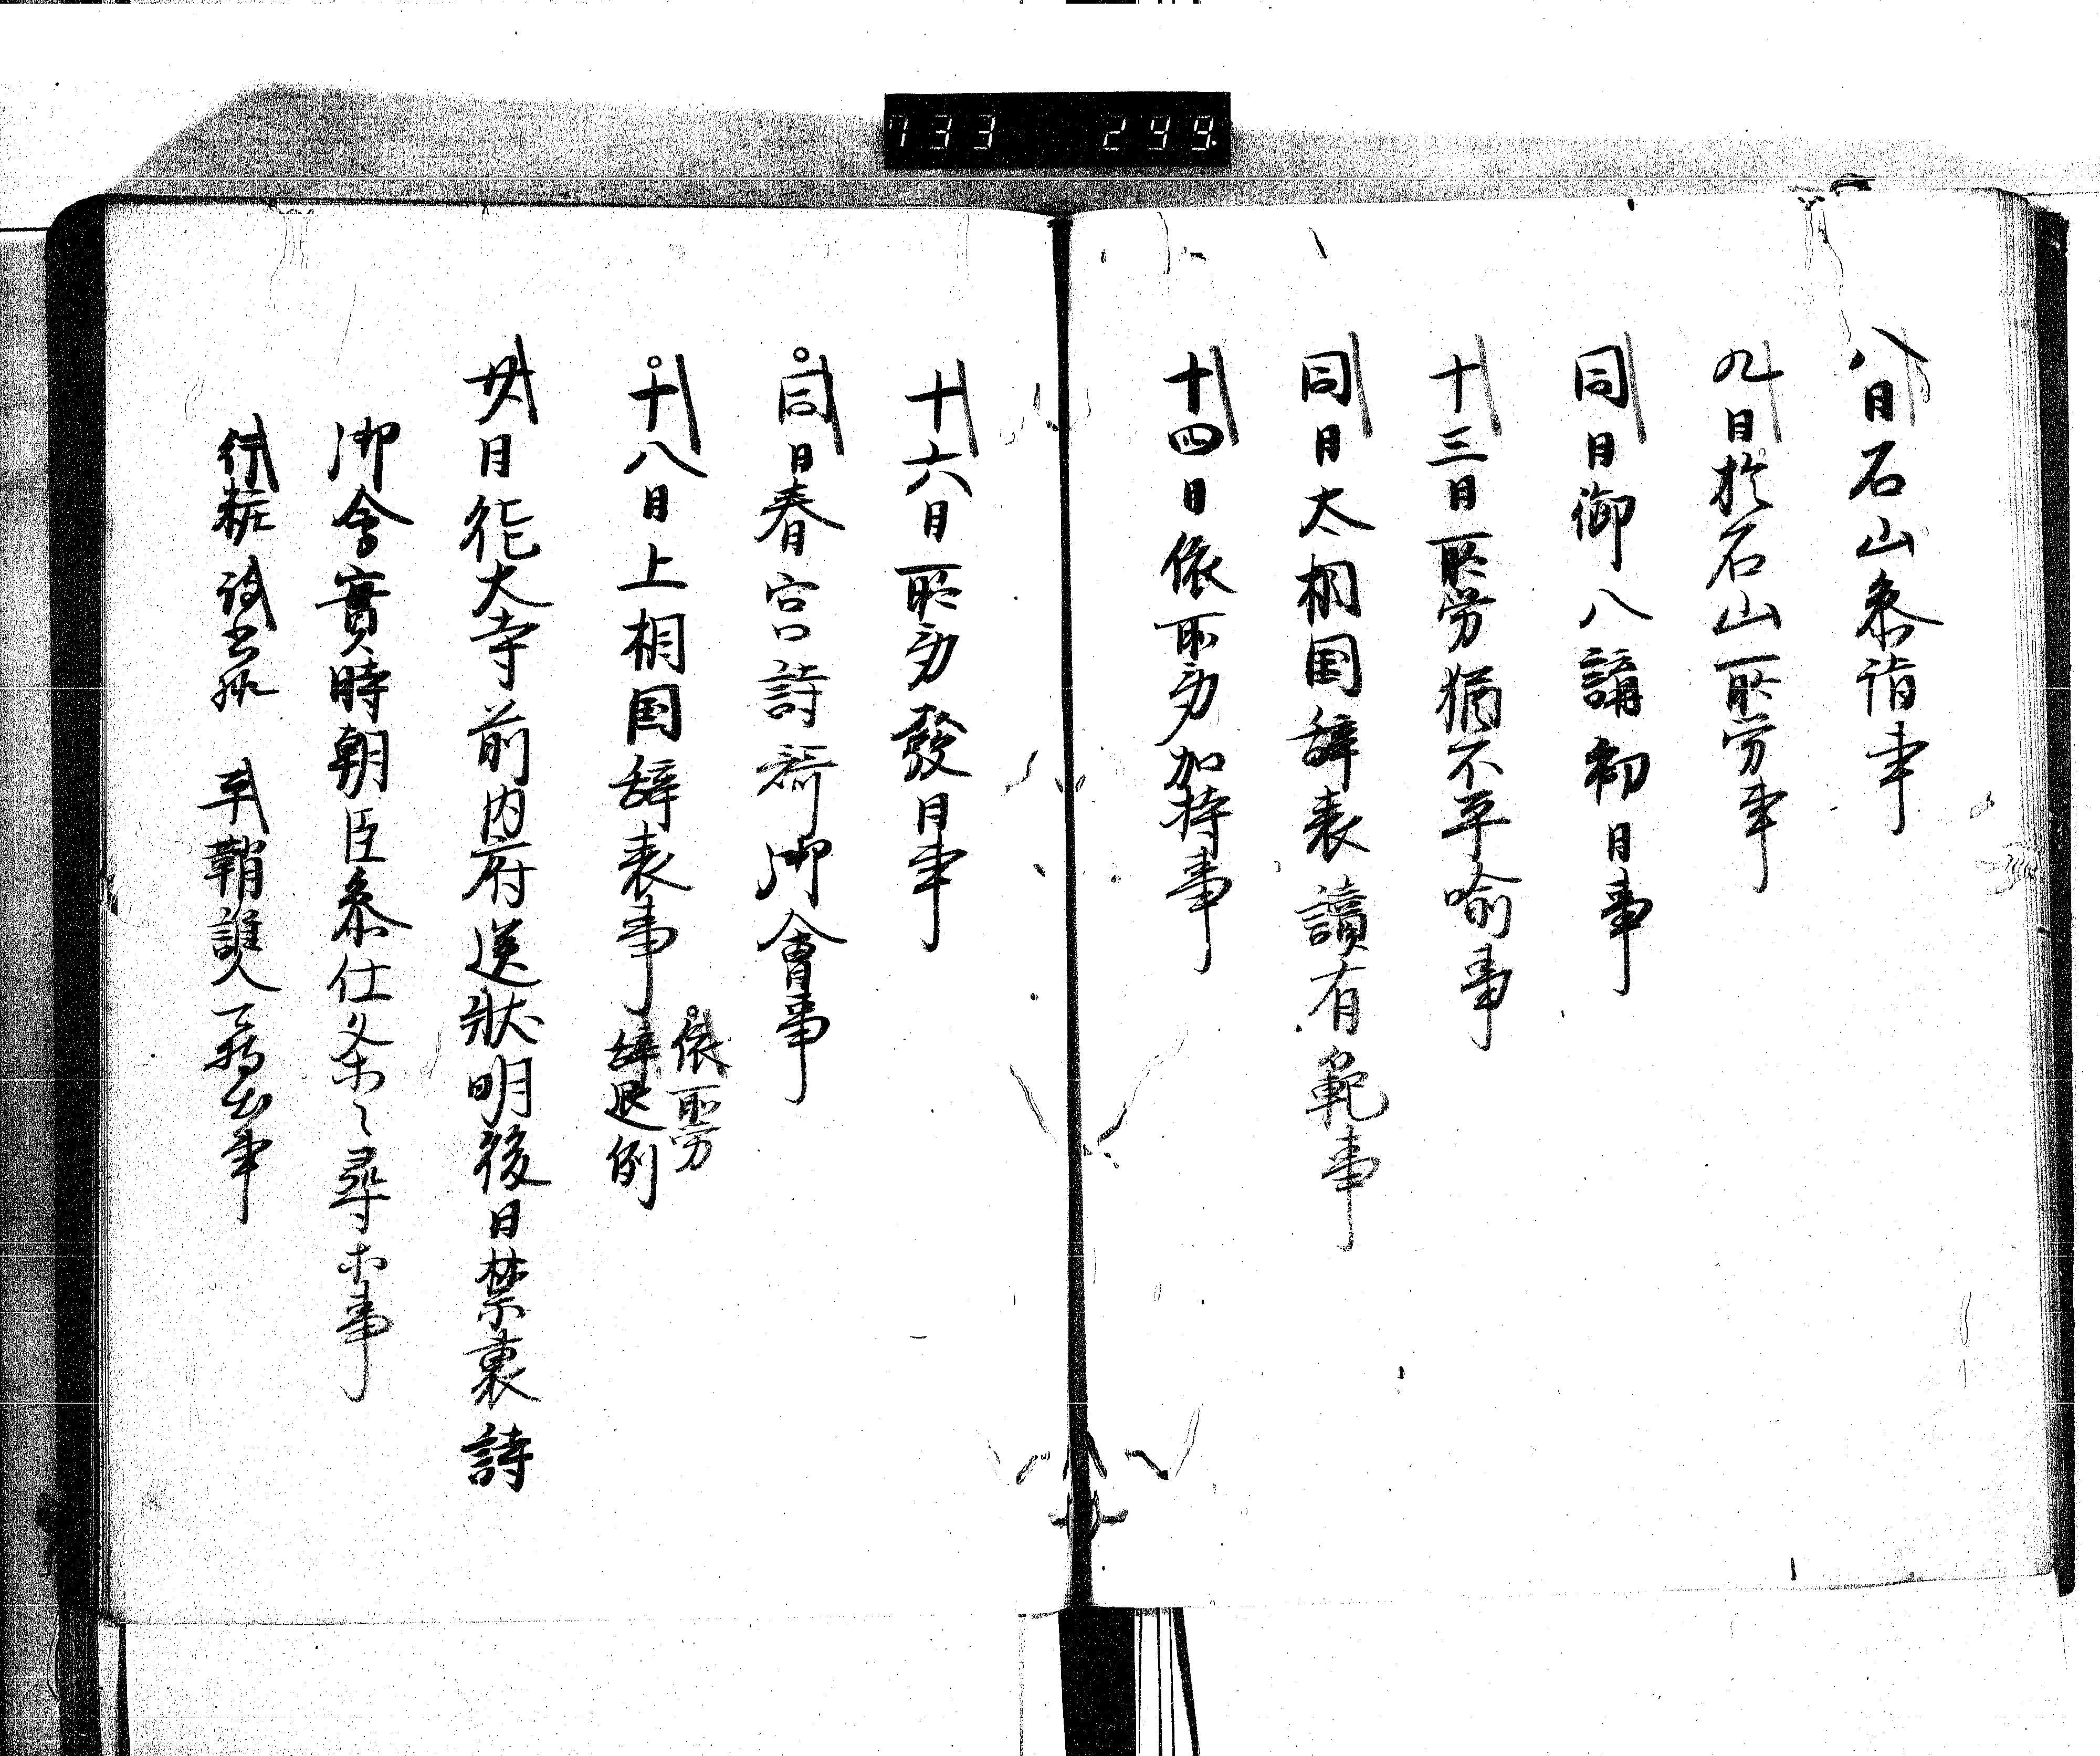 733 299
八日石山参詣事
九日於石山所労事
同日御八講初日事
十三日所労猶不平喩事
同日太相国辞表讀有範事
十四日依所労加持事
十六日所労發日事
同日春宮詩哥御會事
十八日上相国辞表事
依所労
辞退例
廿日徳大寺前内府送状明後日禁裏詩
御會實時朝臣参仕条々尋申事
平鞘誰人